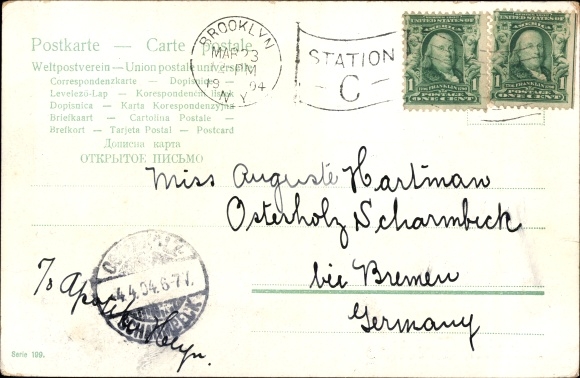 Postkarte — Carte postale
Weltpostverein — Union postale universelle
Correspondenzkarte — Dopisnice
Levelező-Lap — Korespondenční lístek
Dopisnica — Karta Korespondencyjna
Briefkaart — Cartolina Postale
Brefkort — Tarjeta Postal — Postcard
Дописна карта
ОТКРЫТОЕ ПИСЬМО
BROOKLYN
MAR 23
PM
19 04
N.Y.
STATION
C
UNITED STATES OF AMERICA
FRANKLIN
POSTAGE
1 ONE CENT 1
UNITED STATES OF AMERICA
FRANKLIN
POSTAGE
1 ONE CENT
Miss Auguste Hartman
Osterholz Scharmbeck
bie Bremen
Germany
4.4.04.6-7V.
SCHARMBECK
To
Heyn.
Serie 199.